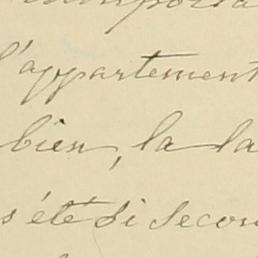 l'appartement
bien, la la
s été si secou